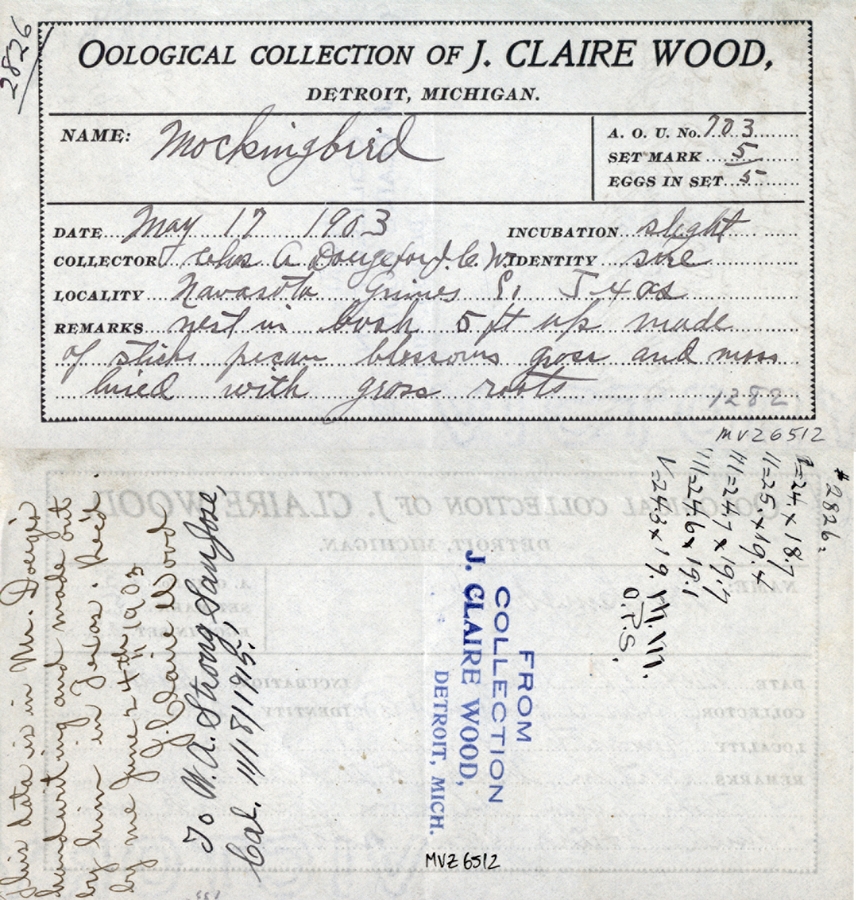 2826
OOLOGICAL COLLECTION OF J. CLAIRE WOOD,
DETROIT, MICHIGAN.
NAME: Mockingbird
A. O. U. No. 703
SET MARK 5
EGGS IN SET 5
DATE May 17 1903 INCUBATION slight
COLLECTOR A for J.C.W. IDENTITY sure
LOCALITY Navasota Grimes Co. Texas
REMARKS nest in bush 5 ft up made
of sticks pecan blossoms grass and moss
lined with grass roots
1282
MVZ 6512
#2826:
I=24. x 18.7
II=25 x 19.4
III=24.7 x 19.7
IIII=24.6 x 19.1
V=24.3 x 19. m.m.
O.R.S.
FROM
COLLECTION
J. CLAIRE WOOD,
DETROIT, MICH.
MVZ 6512
This data is in Mr. Doug's
handwriting and made out
by him in Texas. Rec'd.
by me June 4th 1903
J. Claire Wood
To W. A. Strong, San Jose,
Cal. 11/8/1915.